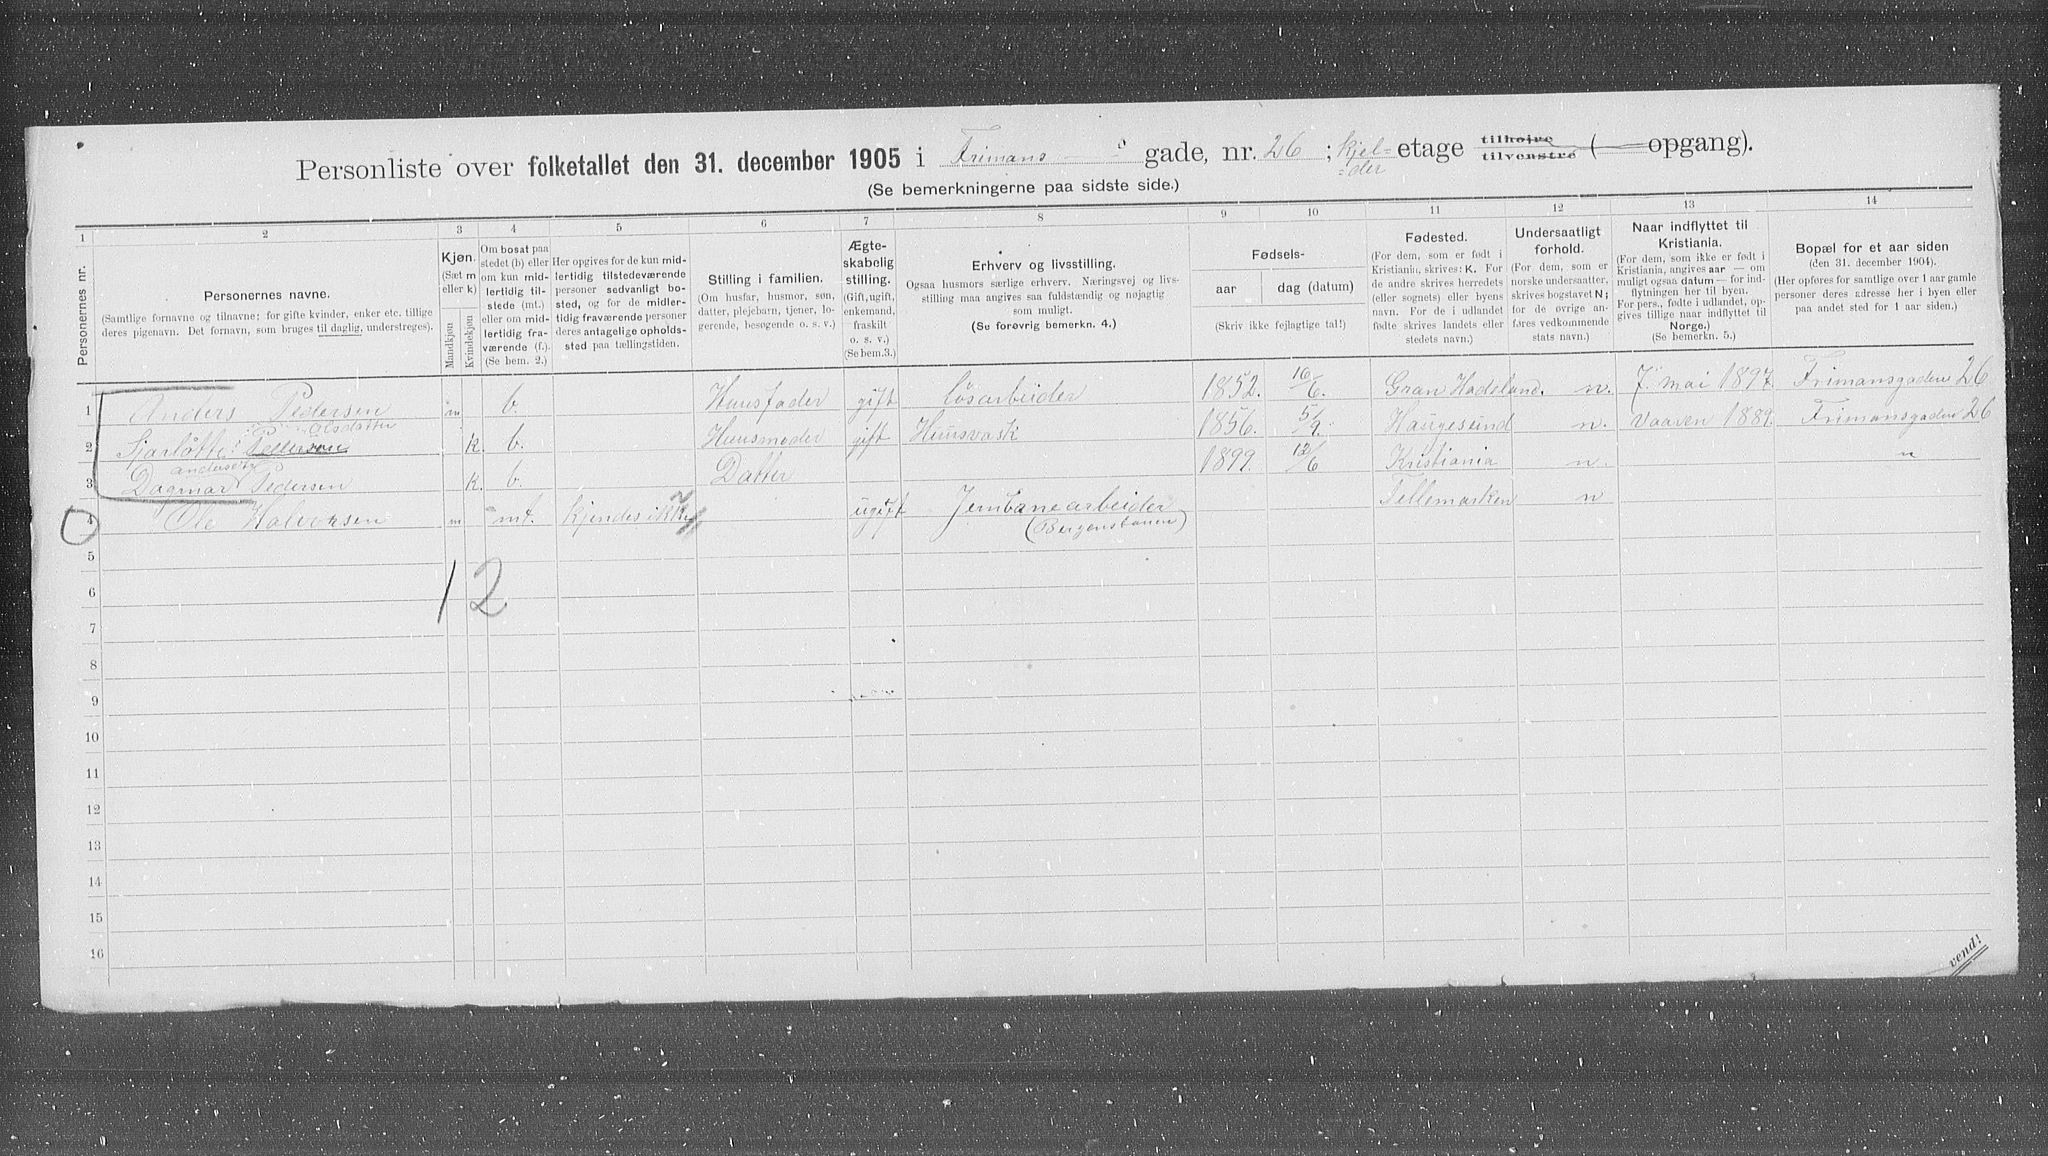 Personliste over folketallet den 31. december 1905 i Frimans gade, nr. 26 ; kjel= etage tilhøire tilvenstre ( opgang).
=der
(Se bemerkningerne paa sidste side.)
1 2 3 4 5 6 7 8 9 10 11 12 13 14
Personernes nr.
Personernes navne.
(Samtlige fornavne og tilnavne; for gifte kvinder, enker etc. tillige
deres pigenavn. Det fornavn, som bruges til daglig, understreges).
Kjøn.
(Sæt m
eller k)
Mandkjøn
Kvindekjøn
Om bosat paa
stedet (b) eller
om kun mid-
lertidig til-
stede (mt.)
eller om mid-
lertidig fra-
værende (f.).
(Se bem. 2.)
Her opgives for de kun mid-
lertidig tilstedeværende
personer sedvanligt bo-
sted, og for de midler-
tidig fraværende personer
deres antagelige opholds-
sted paa tællingstiden.
Stilling i familien.
(Om husfar, husmor, søn,
datter, plejebarn, tjener, lo-
gerende, besøgende o. s. v.)
Ægte-
skabelig
stilling.
(Gift, ugift,
enkemand,
fraskilt
o. s. v.)
(Se bem.3.)
Erhverv og livsstilling.
Ogsaa husmors særlige erhverv. Næringsvej og livs-
stilling maa angives saa fuldstændig og nøjagtig
som muligt.
(Se forøvrig bemerkn. 4.)
Fødsels-
aar
dag (datum)
(Skriv ikke fejlagtige tal!)
Fødested.
(For dem, som er født i
Kristiania, skrives: K. For
de andre skrives herredets
(eller sognets) eller byens
navn. For de i udlandet
fødte skrives landets eller
stedets navn.)
Undersaatligt
forhold.
(For dem, som er
norske undersaatter,
skrives bogstavet N;
for de øvrige an-
føres vedkommende
stats navn.)
Naar indflyttet til
Kristiania.
(For dem, som ikke er født i
Kristiania, angives aar — om
muligt ogsaa datum — for ind-
flytningen her til byen.
For pers., fødte i udlandet, op-
gives tillige naar indflyttet til
Norge.)
(Se bemerkn. 5.)
Bopæl for et aar siden
(den 31. december 1904).
(Her opføres for samtlige over 1 aar gamle
personer deres adresse her i byen eller
paa andet sted for 1 aar siden.)
1 Anders Pedersen m b. Huusfader gift løsarbeider 1852. 16/6. Gran Hadeland. n. 7. mai 1897. Frimansgaden 26
Olsdatter
2 Sjarlotte Pedersen k. b. Huusmoder gift Huusvask 1856. 5/9. Haugesund n. Vaaren 1889. Frimansgaden 26
andersdtr
3 Dagmar Pedersen k. b. Datter 1899. 12/6 Kristiania n. "
4 Ole Halvorsen m mt. kjendes ikke ugift Jernbanearbeider Tellemarken n
(Bergensbanen)
5
1 2
6
7
8
9
10
11
12
13
14
15
16
vend!